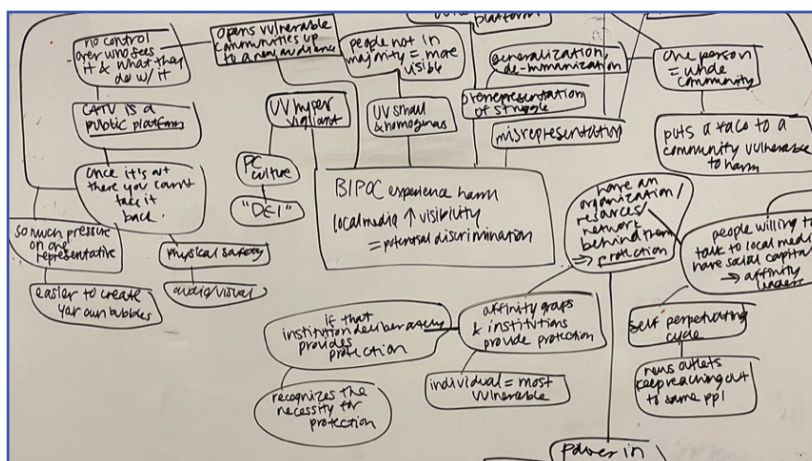 platform
no control
over who sees
it & what they
do w/ it
opens vulnerable
communities up
to a new audience
people not in
majority = more
visible
generalization,
de-humanization
one person
= whole
community
CATV is a
public platform
UV hyper
vigilant
UV small
& homogenous
overrepresentation
of struggle
misrepresentation
puts a face to a
community vulnerable
to harm
once it's out
there you can't
take it
back
PC
culture
"DEI"
BIPOC experience harm
local media ↑ visibility
= potential discrimination
have an
organization/
resources/
network
behind them
⇒ protection
people willing to
talk to local media
have social capital
→ affinity
leaders
so much pressure
on one
representative
physical safety
easier to create
your own bubbles
audio/visual
if that
institution deliberately
provides
protection
affinity groups
& institutions
provide protection
self perpetuating
cycle
recognizes the
necessity for
protection
individual = most
vulnerable
news outlets
keep reaching out
to same ppl
power in